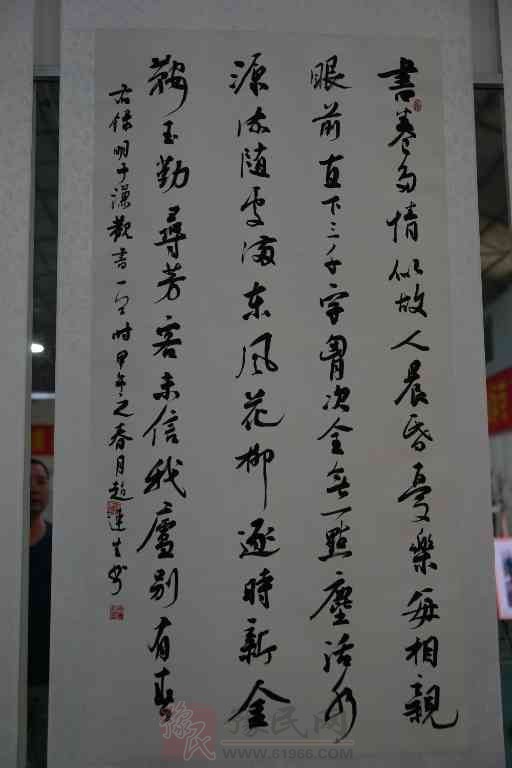 書卷多情似故人晨昏憂樂每相親
眼前直下三千字胷次全無一點塵活水
源流随處滿東風花柳逐時新金
鞍玉勒尋芳客未信我廬別有春
右錄明于謙觀書一首時甲午之春月趙連生書
豫民
豫民网
www.61966.com